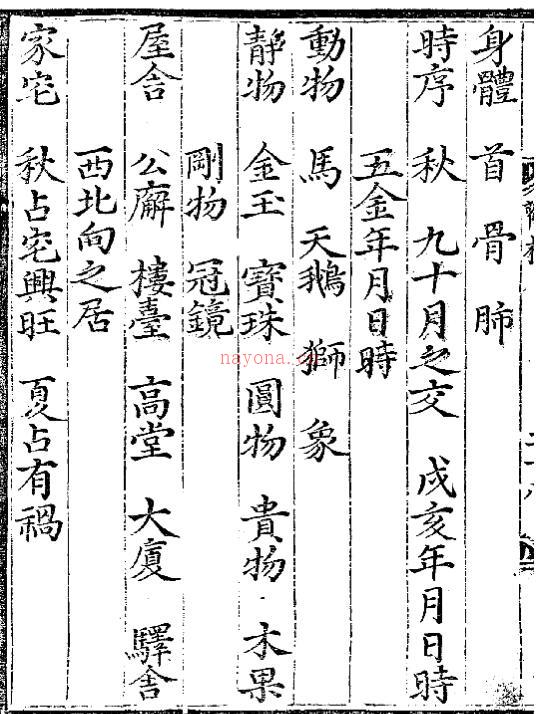 身體 首 骨 肺
時序 秋 九十月之交 戌亥年月日時
五金年月日時
動物 馬 天鵝 獅 象
靜物 金玉 寶珠 圓物 貴物 木果
剛物 冠鏡
屋舍 公廨 樓臺 高堂 大廈 驛舍
西北向之居
家宅 秋占宅興旺 夏占有禍